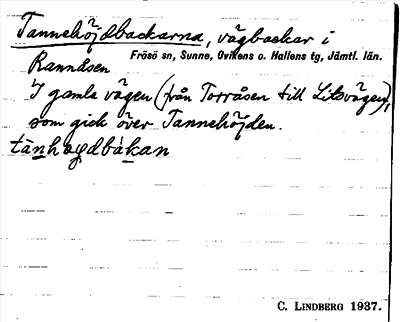 Tannehöjdbackarna, vägbackar i
Frösö sn, Sunne, Ovikens o. Hallens tg, Jämtl. län.
Rannåsen
I gamla vägen (från Torråsen till Litsvägen),
som gick över Tannehöjden.
tänhǫgdbákan
C. LINDBERG 1937.